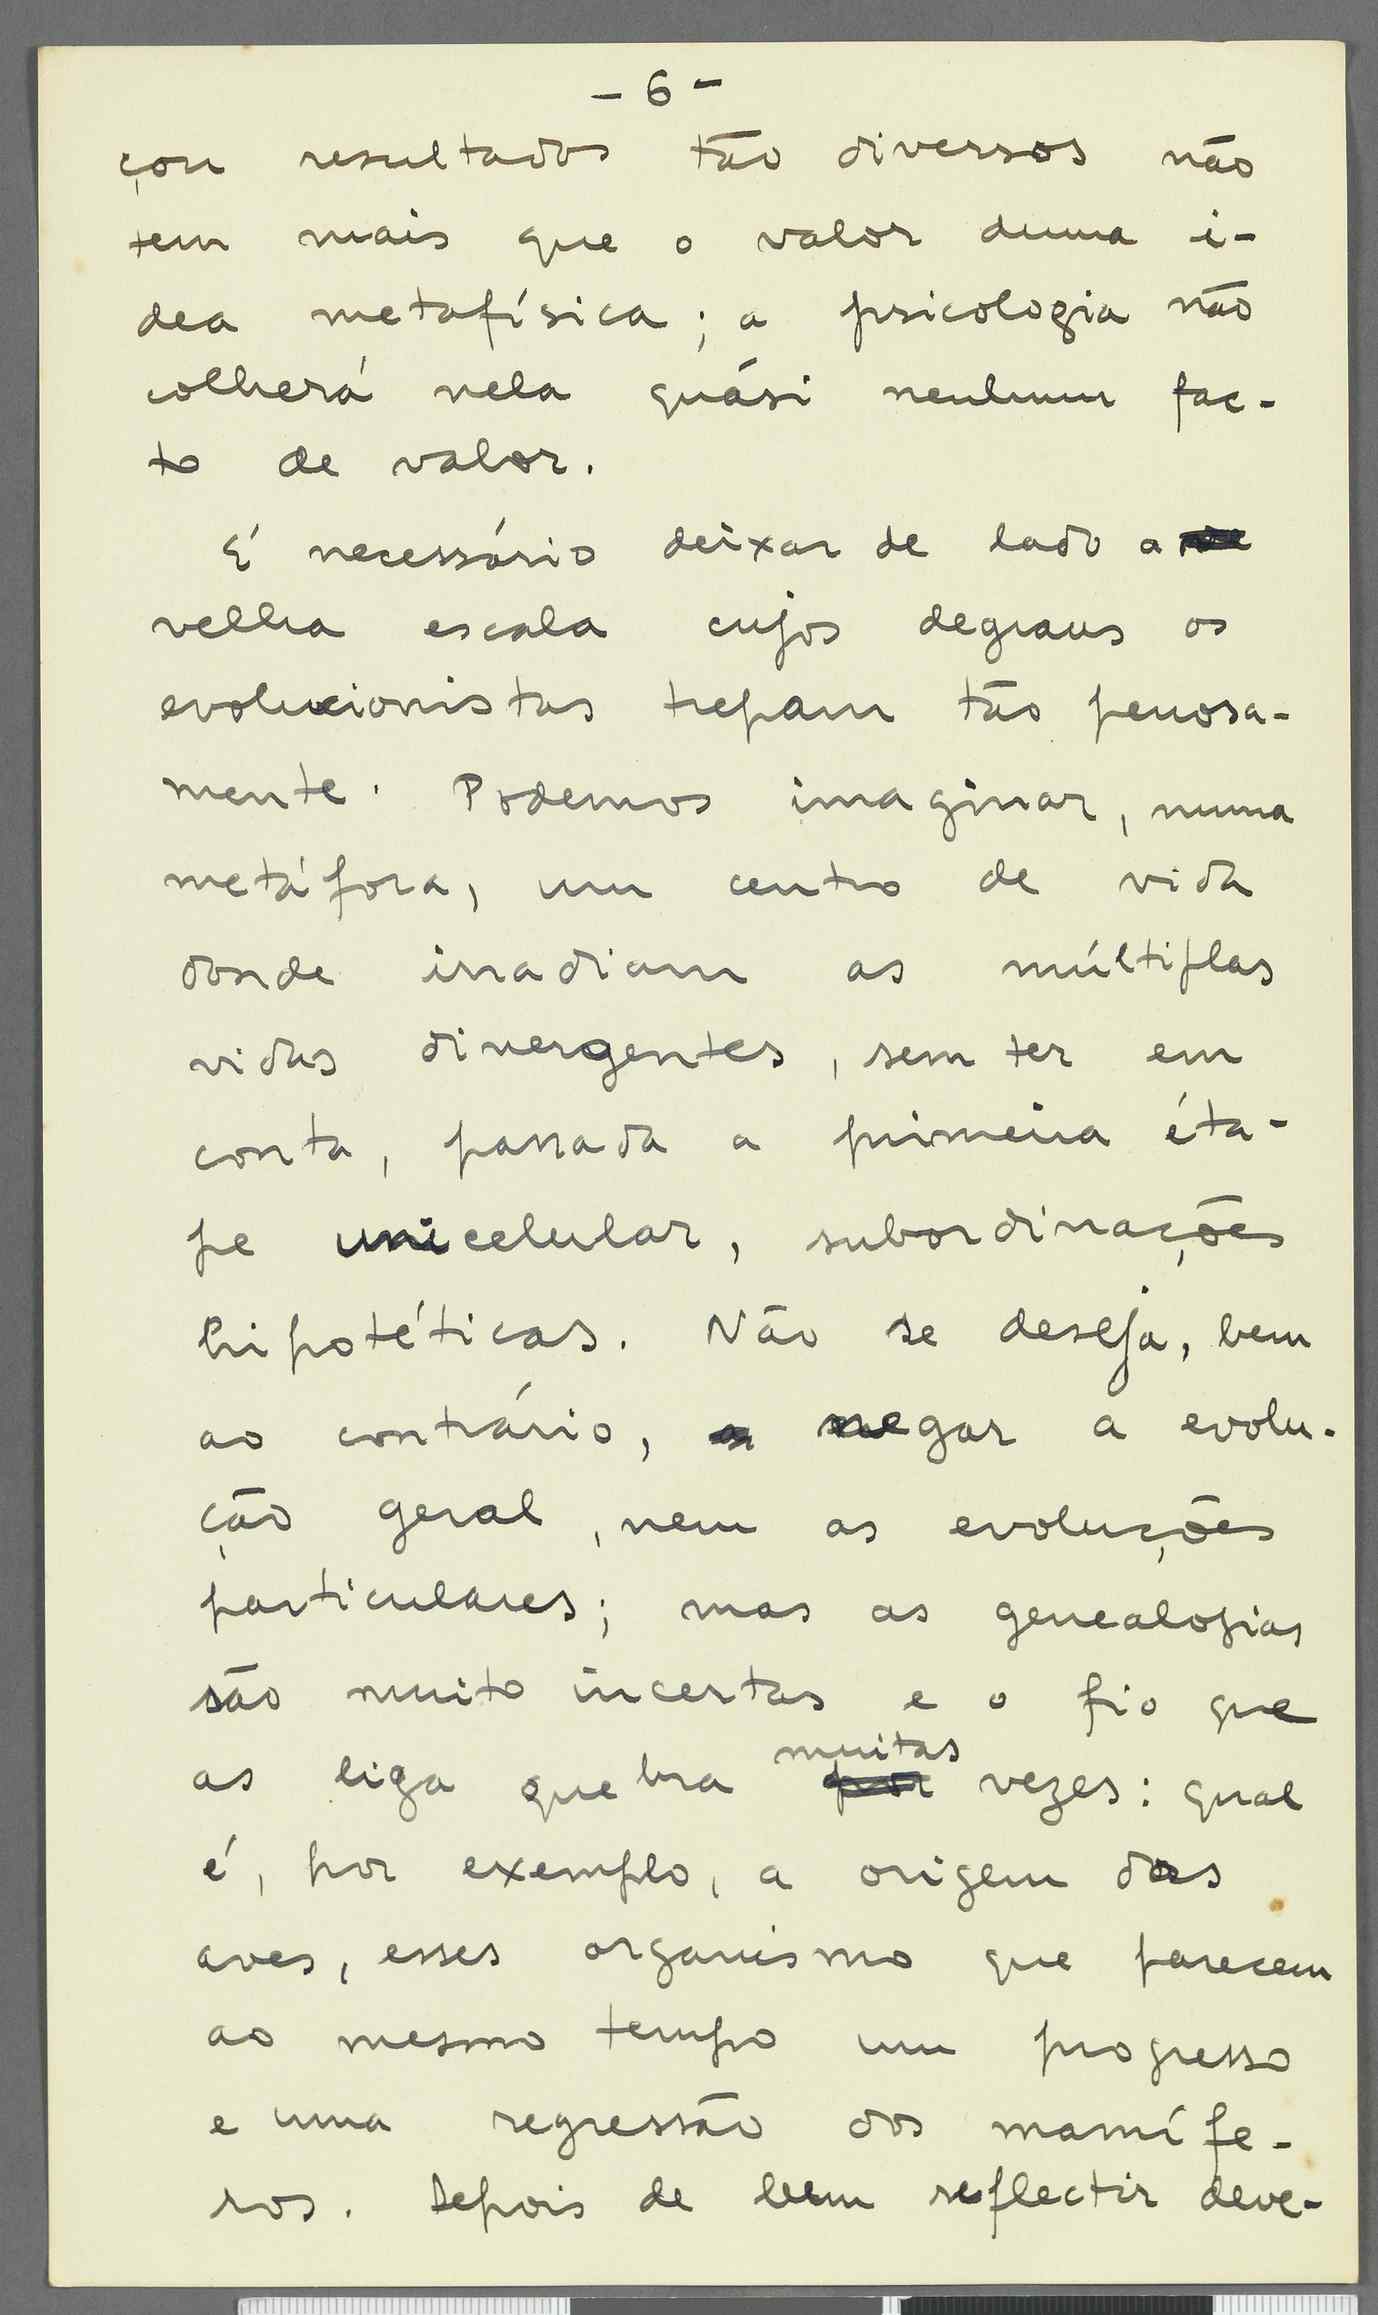 - 6 -
çou resultados tão diversos não
tem mais que o valor duma i-
dea metafísica; a psicologia não
colherá nela quási nenhum fac-
to de valor.
É necessário deixar de lado a
velha escala cujos degraus os
evolucionistas trepam tão penosa-
mente. Podemos imaginar, numa
metáfora, um centro de vida
donde irradiam as múltiplas
vidas divergentes, sem ter em
conta, passada a primeira éta-
pe unicelular, subordinações
hipotéticas. Não se deseja, bem
ao contrário, negar a evolu-
ção geral, nem as evoluções
particulares; mas as genealogias
são muito incertas e o fio que
as liga quebra muitas vezes: qual
é, por exemplo, a origem das
aves, esses organismo que parecem
ao mesmo tempo um progresso
e uma regressão dos mamífe-
ros. Depois de bem reflectir deve-